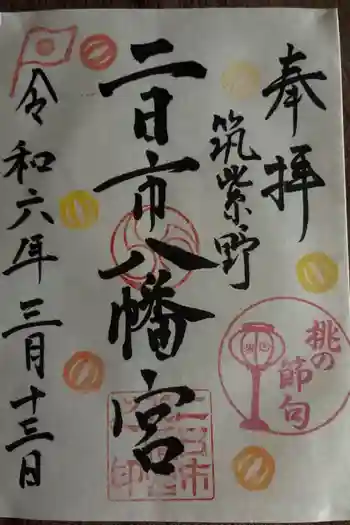 奉拝
筑紫野
二日市八幡宮
令和六年三月十三日
桃の
節句